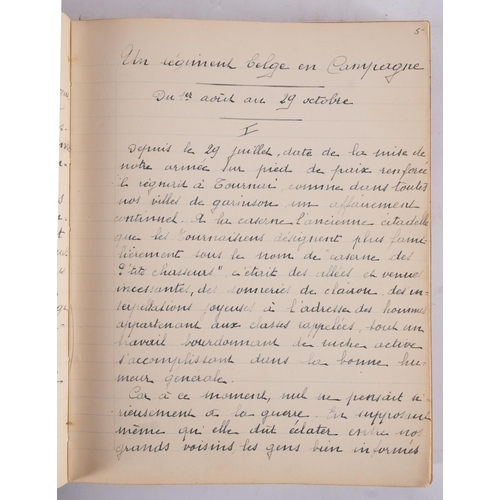 5
Un régiment belge en Campagne
Du 1er août au 29 octobre
I
Depuis le 29 juillet, date de la mise de
notre armée sur pied de paix renforcé
il régnait à Tournai, comme dans toutes
nos villes de garnison un affairement
continuel. A la caserne l'ancienne citadelle
que les Tournaisiens désignent plus fami-
lièrement sous le nom de "caserne des
P'tits chasseurs", c'était des allées et venues
incessantes, des sonneries de clairon, des in-
terpellations joyeuses à l'adresse des hommes
appartenant aux classes rappelées, tout un
travail bourdonnant de ruche active
s'accomplissant dans la bonne hu-
meur générale.
Car à ce moment, nul ne pensait sé-
rieusement à la guerre. En supposant
même qu'elle dût éclater entre nos
grands voisins, les gens bien informés